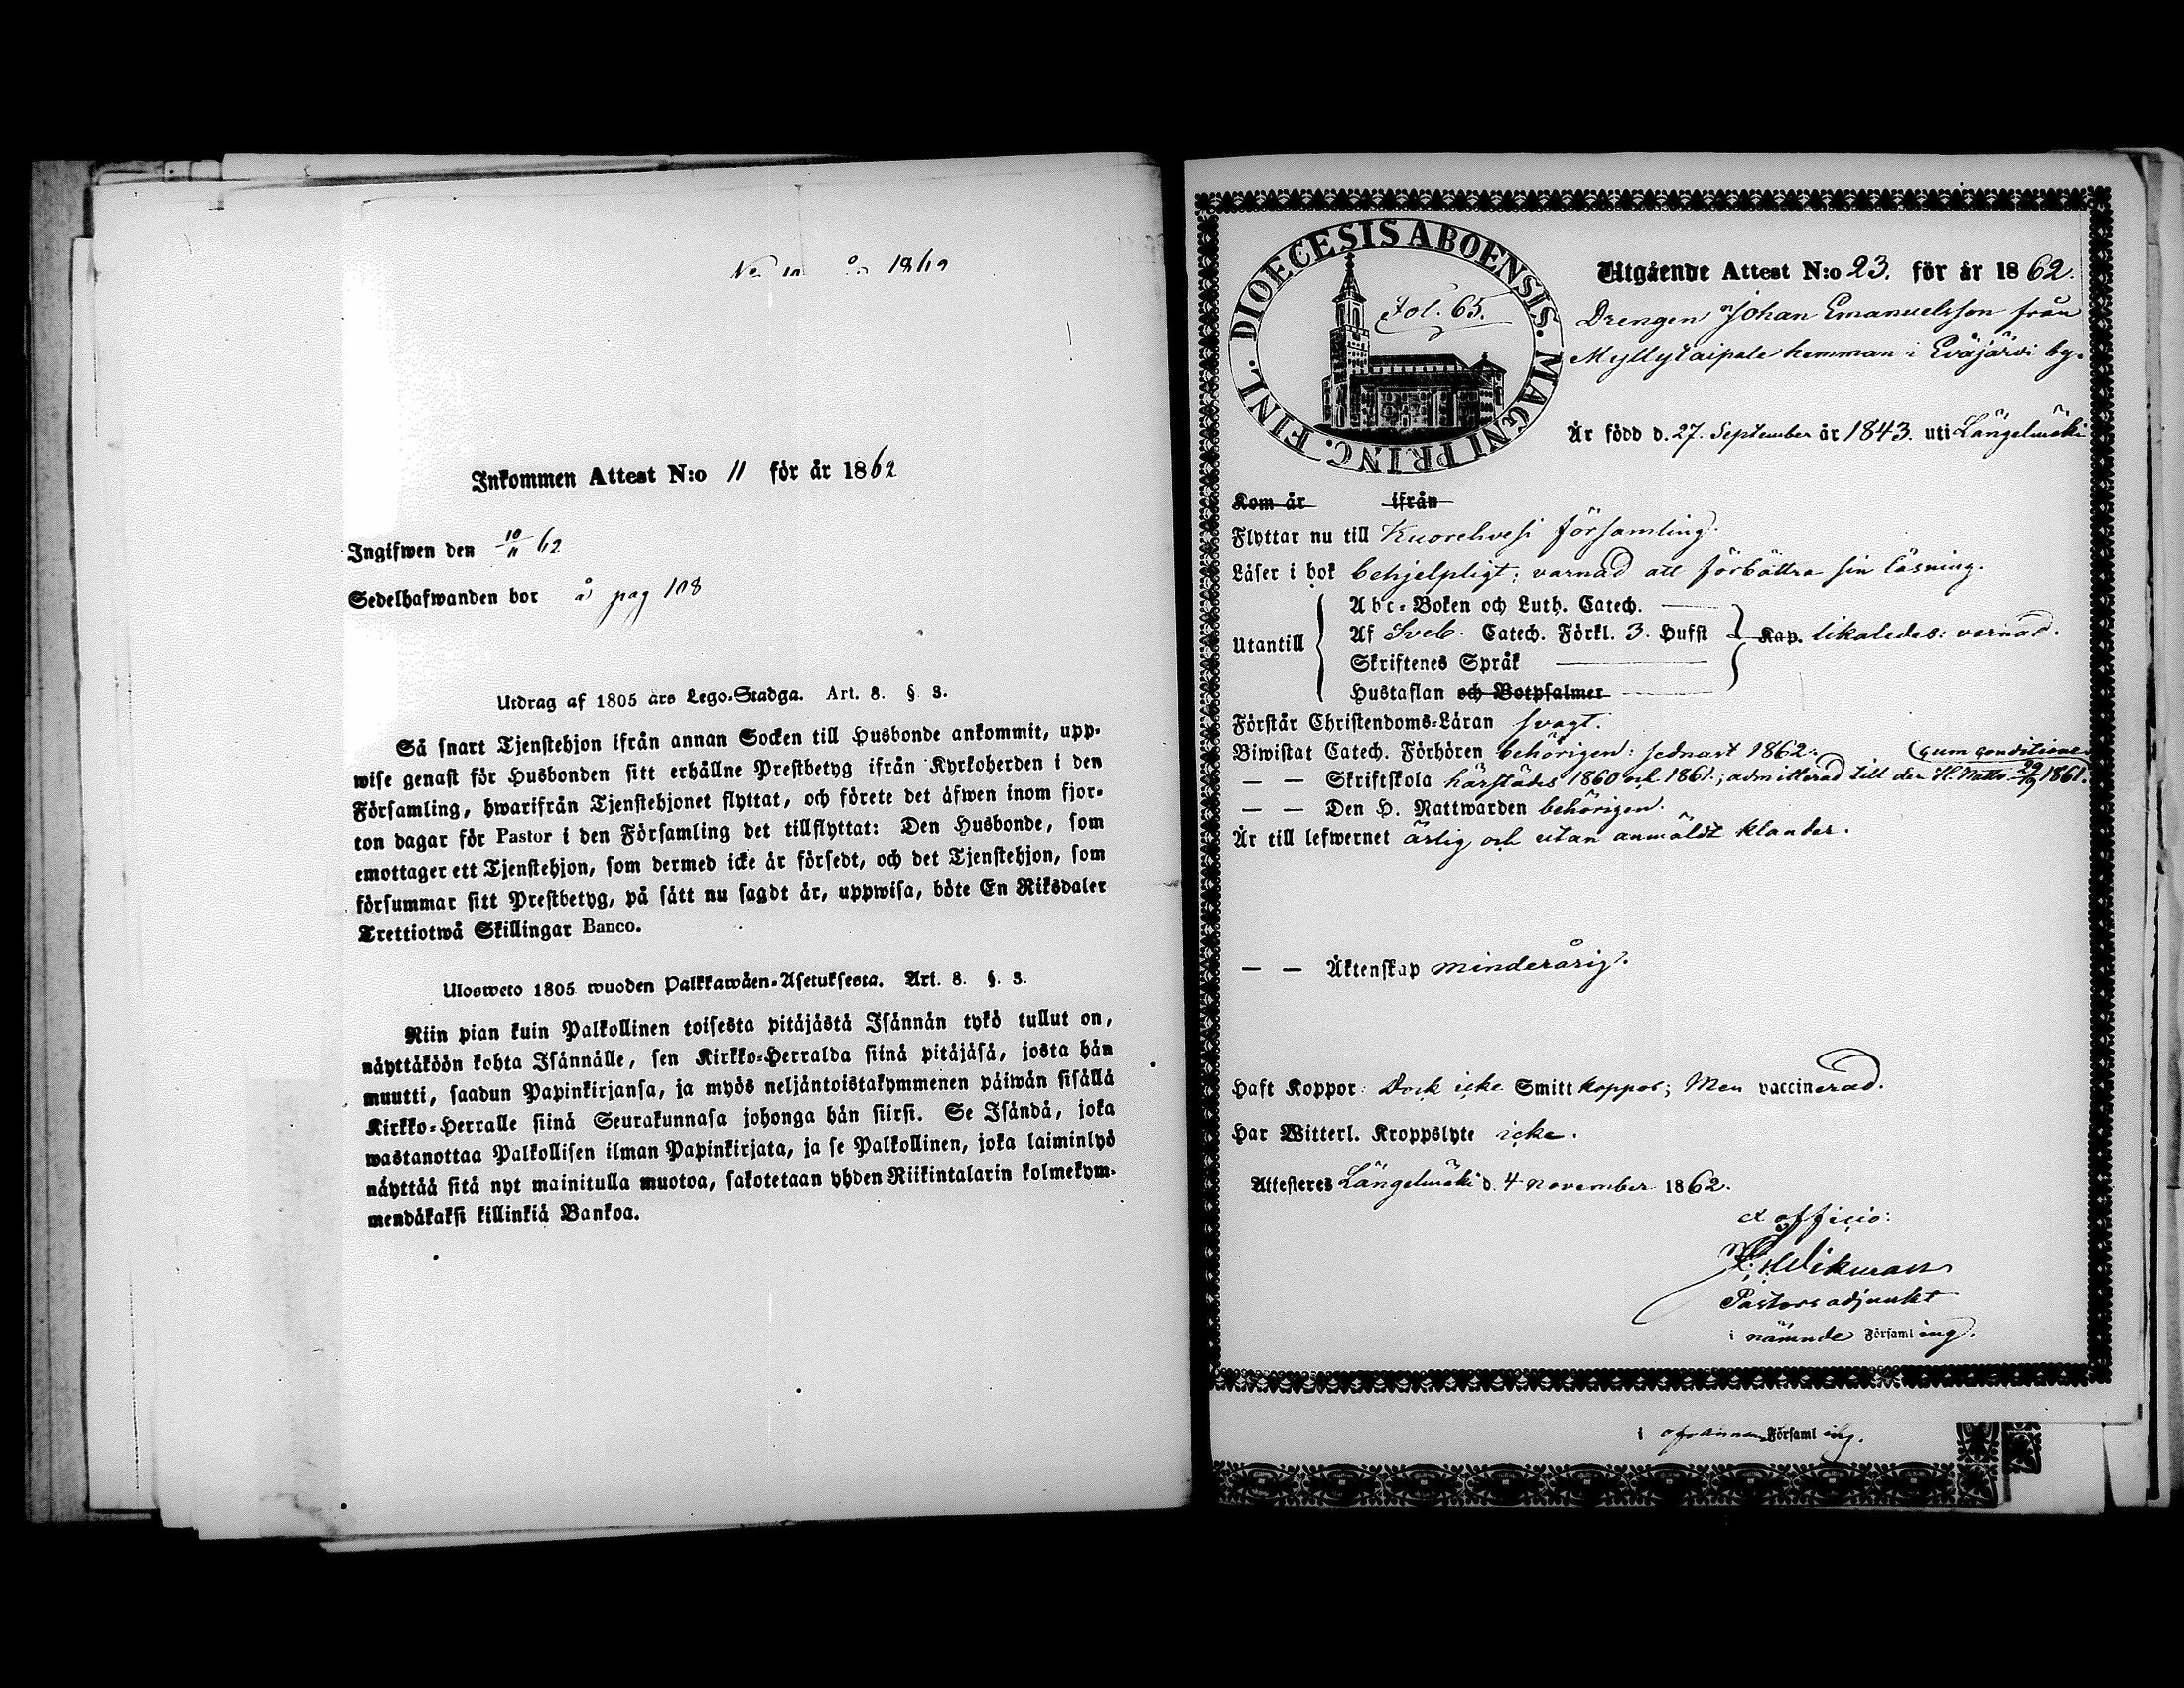 1862
Inkommen Attest N:o 11 för år 1862
Ingifwen den 10/11 62
Sedelhafwanden bor å pag 108
Utdrag af 1805 års Lego-Stadga. Art. 8. §. 3.
Så snart Tjenstehjon ifrån annan Socken till Husbonde ankommit, upp-
wise genast för Husbonden sitt erhållne Prestbetyg ifrån Kyrkoherden i den
Församling, hwarifrån Tjenstehjonet flyttat, och förete det äfwen inom fjor-
ton dagar för Pastor i den Församling det tillflyttat: Den Husbonde, som
emottager ett Tjenstehjon, som dermed icke är försedt, och det Tjenstehjon, som
försummar sitt Prestbetyg, på sätt nu sagdt är, uppwisa, böte En Riksdaler
Trettiotwå Skillingar Banco.
Ulosweto 1805 wuoden Palkkawäen-Asetuksesta. Art. 8. §. 3.
Niin pian kuin Palkollinen toisesta pitäjästä Isännän tykö tullut on,
näyttäköön kohta Isännälle, sen Kirkko-Herralda siinä pitäjäsä, josta hän
muutti, saadun Papinkirjansa, ja myös neljäntoistakymmenen päiwän sisällä
Kirkko-Herralle siinä Seurakunnasa johonga hän siirsi. Se Isändä, joka
wastanottaa Palkollisen ilman Papinkirjata, ja se Palkollinen, joka laiminlyö
näyttää sitä nyt mainitulla muotoa, sakotetaan yhden Riikintalarin kolmekym-
mendäkaksi killinkiä Bankoa.
DIOECESIS ABOENSIS. MAGNI PRINC. FINL.
Fol. 65.
Utgående Attest N:o 23. för år 1862.
Drengen Johan Emanuelsson från
Myllytaipale hemman i Eväjärvi by.
Är född d. 27. September år 1843. uti Längelmäki
Kom år ifrån
Flyttar nu till Kuorehvesi församling.
Läser i bok behjelpligt; varnad att förbättra sin läsning.
Abc-Boken och Luth. Catech.
Utantill Af Sveb. Catech. Förkl. 3. Hufst Kap. likaledes: varnad.
Skriftenes Språk
Hustaflan och Botpsalmer
Förstår Christendoms-Läran svagt.
Biwistat Catech. Förhören behörigen: sednast 1862. (cum conditione
— — Skriftskola härstädes 1860 och 1861.; admitterad till den H. Nattv. 29/9 1861.
— — Den H. Nattwarden behörigen.
Är till lefwernet ärlig och utan anmäldt klander.
— — Äktenskap minderårig.
Haft Koppor: Dock icke Smittkoppor; Men vaccinerad.
Har Witterl. Kroppslyte icke.
Attesteres Längelmäki d. 4 november 1862.
ex officio:
Wikman
Pastorsadjunkt
i nämnde Församling.
i Församling.